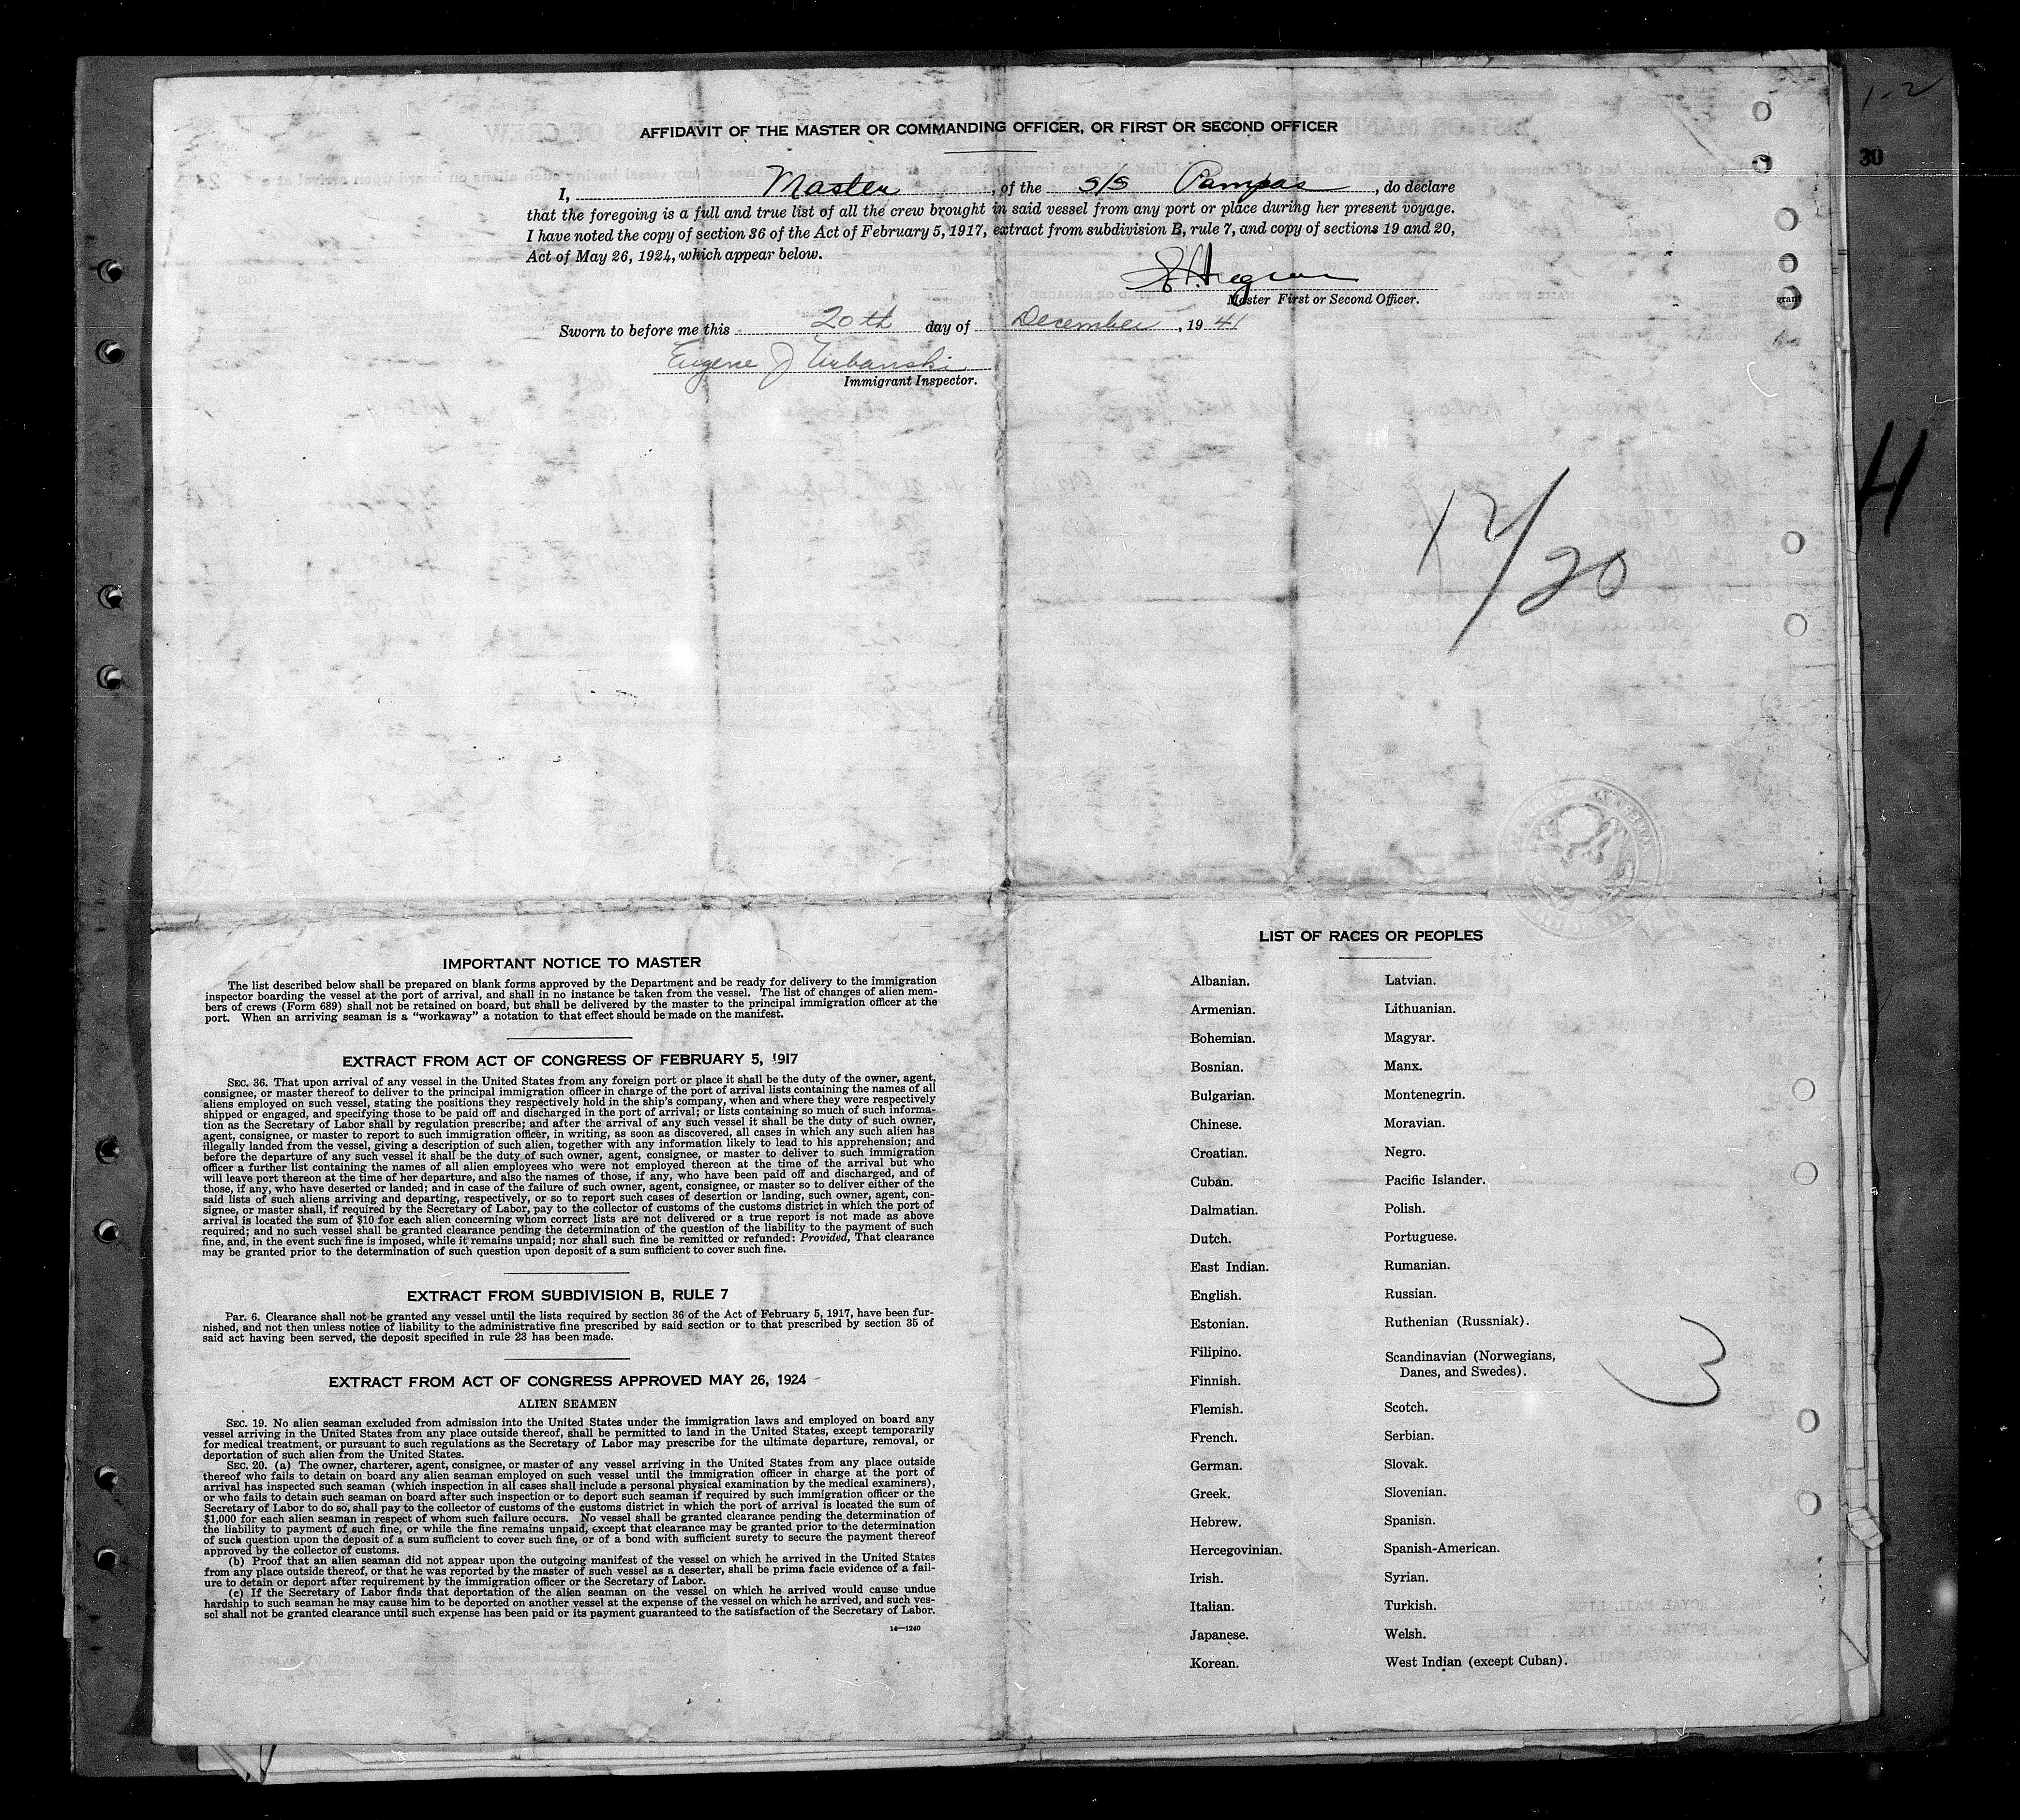 1-2
30
AFFIDAVIT OF THE MASTER OR COMMANDING OFFICER, OR FIRST OR SECOND OFFICER
I, Master, of the S/S Pampas, do declare
that the foregoing is a full and true list of all the crew brought in said vessel from any port or place during her present voyage.
I have noted the copy of section 36 of the Act of February 5, 1917, extract from subdivision B, rule 7, and copy of sections 19 and 20,
Act of May 26, 1924, which appear below.
Master First or Second Officer.
grant
Sworn to before me this 20th day of December, 19 41
Eugene J Urbanski
Immigrant Inspector.
4
12/20
IMPORTANT NOTICE TO MASTER
The list described below shall be prepared on blank forms approved by the Department and be ready for delivery to the immigration
inspector boarding the vessel at the port of arrival, and shall in no instance be taken from the vessel. The list of changes of alien mem-
bers of crews (Form 689) shall not be retained on board, but shall be delivered by the master to the principal immigration officer at the
port. When an arriving seaman is a "workaway" a notation to that effect should be made on the manifest.
EXTRACT FROM ACT OF CONGRESS OF FEBRUARY 5, 1917
SEC. 36. That upon arrival of any vessel in the United States from any foreign port or place it shall be the duty of the owner, agent,
consignee, or master thereof to deliver to the principal immigration officer in charge of the port of arrival lists containing the names of all
aliens employed on such vessel, stating the positions they respectively hold in the ship's company, when and where they were respectively
shipped or engaged, and specifying those to be paid off and discharged in the port of arrival; or lists containing so much of such informa-
tion as the Secretary of Labor shall by regulation prescribe; and after the arrival of any such vessel it shall be the duty of such owner,
agent, consignee, or master to report to such immigration officer, in writing, as soon as discovered, all cases in which any such alien has
illegally landed from the vessel, giving a description of such alien, together with any information likely to lead to his apprehension; and
before the departure of any such vessel it shall be the duty of such owner, agent, consignee, or master to deliver to such immigration
officer a further list containing the names of all alien employees who were not employed thereon at the time of the arrival but who
will leave port thereon at the time of her departure, and also the names of those, if any, who have been paid off and discharged, and of
those, if any, who have deserted or landed; and in case of the failure of such owner, agent, consignee, or master so to deliver either of the
said lists of such aliens arriving and departing, respectively, or so to report such cases of desertion or landing, such owner, agent, con-
signee, or master shall, if required by the Secretary of Labor, pay to the collector of customs of the customs district in which the port of
arrival is located the sum of $10 for each alien concerning whom correct lists are not delivered or a true report is not made as above
required; and no such vessel shall be granted clearance pending the determination of the question of the liability to the payment of such
fine, and, in the event such fine is imposed, while it remains unpaid; nor shall such fine be remitted or refunded: Provided, That clearance
may be granted prior to the determination of such question upon deposit of a sum sufficient to cover such fine.
EXTRACT FROM SUBDIVISION B, RULE 7
Par. 6. Clearance shall not be granted any vessel until the lists required by section 36 of the Act of February 5, 1917, have been fur-
nished, and not then unless notice of liability to the administrative fine prescribed by said section or to that prescribed by section 35 of
said act having been served, the deposit specified in rule 23 has been made.
EXTRACT FROM ACT OF CONGRESS APPROVED MAY 26, 1924
ALIEN SEAMEN
SEC. 19. No alien seaman excluded from admission into the United States under the immigration laws and employed on board any
vessel arriving in the United States from any place outside thereof, shall be permitted to land in the United States, except temporarily
for medical treatment, or pursuant to such regulations as the Secretary of Labor may prescribe for the ultimate departure, removal, or
deportation of such alien from the United States.
SEC. 20. (a) The owner, charterer, agent, consignee, or master of any vessel arriving in the United States from any place outside
thereof who fails to detain on board any alien seaman employed on such vessel until the immigration officer in charge at the port of
arrival has inspected such seaman (which inspection in all cases shall include a personal physical examination by the medical examiners),
or who fails to detain such seaman on board after such inspection or to deport such seaman if required by such immigration officer or the
Secretary of Labor to do so, shall pay to the collector of customs of the customs district in which the port of arrival is located the sum of
$1,000 for each alien seaman in respect of whom such failure occurs. No vessel shall be granted clearance pending the determination of
the liability to payment of such fine, or while the fine remains unpaid, except that clearance may be granted prior to the determination
of such question upon the deposit of a sum sufficient to cover such fine, or of a bond with sufficient surety to secure the payment thereof
approved by the collector of customs.
(b) Proof that an alien seaman did not appear upon the outgoing manifest of the vessel on which he arrived in the United States
from any place outside thereof, or that he was reported by the master of such vessel as a deserter, shall be prima facie evidence of a fail-
ure to detain or deport after requirement by the immigration officer or the Secretary of Labor.
(c) If the Secretary of Labor finds that deportation of the alien seaman on the vessel on which he arrived would cause undue
hardship to such seaman he may cause him to be deported on another vessel at the expense of the vessel on which he arrived, and such ves-
sel shall not be granted clearance until such expense has been paid or its payment guaranteed to the satisfaction of the Secretary of Labor.
14—1240
LIST OF RACES OR PEOPLES
Albanian.
Armenian.
Bohemian.
Bosnian.
Bulgarian.
Chinese.
Croatian.
Cuban.
Dalmatian.
Dutch.
East Indian.
English.
Estonian.
Filipino.
Finnish.
Flemish.
French.
German.
Greek.
Hebrew.
Hercegovinian.
Irish.
Italian.
Japanese.
Korean.
Latvian.
Lithuanian.
Magyar.
Manx.
Montenegrin.
Moravian.
Negro.
Pacific Islander.
Polish.
Portuguese.
Rumanian.
Russian.
Ruthenian (Russniak).
Scandinavian (Norwegians,
Danes, and Swedes).
Scotch.
Serbian.
Slovak.
Slovenian.
Spanish.
Spanish-American.
Syrian.
Turkish.
Welsh.
West Indian (except Cuban).
3